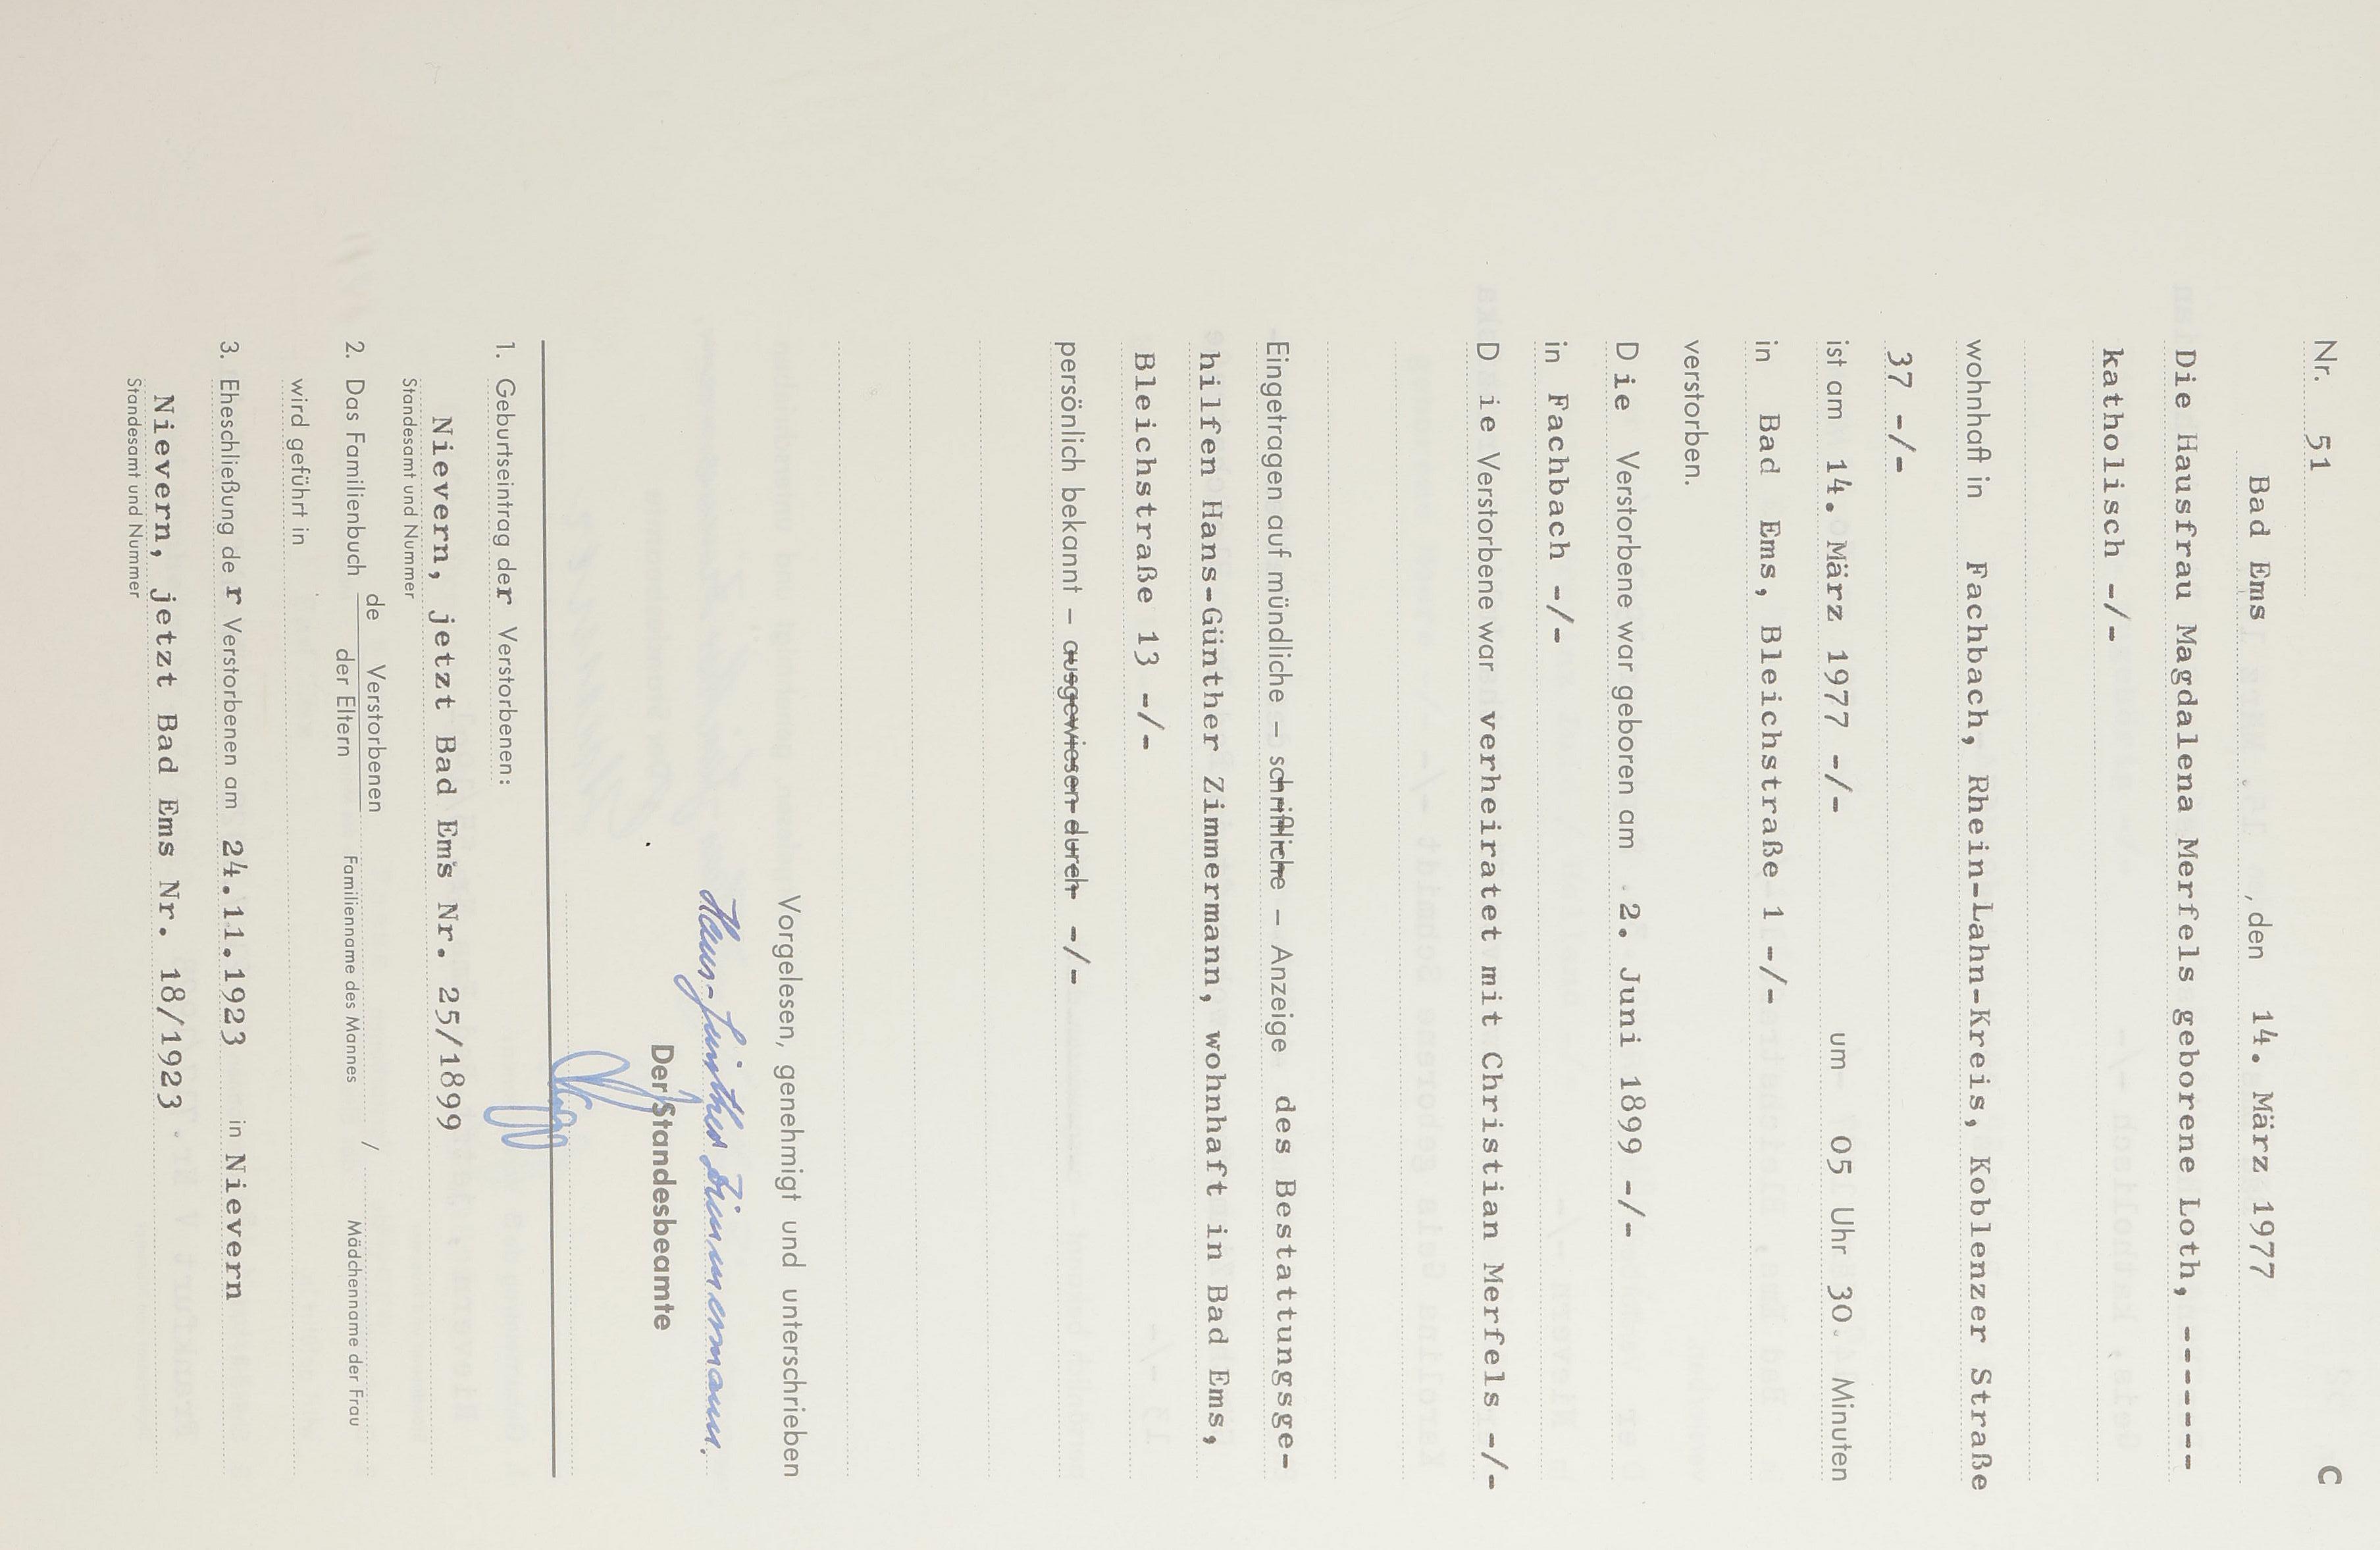 Nr. 51 C
Bad Ems, den 14. März 1977
Die Hausfrau Magdalena Merfels geborene Loth, -------
katholisch -/-
wohnhaft in Fachbach, Rhein-Lahn-Kreis, Koblenzer Straße
37 -/-
ist am 14. März 1977 -/- um 05 Uhr 30 Minuten
in Bad Ems, Bleichstraße 1 -/-
verstorben.
Die Verstorbene war geboren am 2. Juni 1899 -/-
in Fachbach -/-
Die Verstorbene war verheiratet mit Christian Merfels -/-
Eingetragen auf mündliche – schriftliche – Anzeige des Bestattungsge-
hilfen Hans-Günther Zimmermann, wohnhaft in Bad Ems,
Bleichstraße 13 -/-
persönlich bekannt – ausgewiesen durch -/-
Vorgelesen, genehmigt und unterschrieben
Hans-Günther Zimmermann.
Der Standesbeamte
1. Geburtseintrag der Verstorbenen:
Nievern, jetzt Bad Ems Nr. 25/1899
Standesamt und Nummer
2. Das Familienbuch de Verstorbenen /
der Eltern Familienname des Mannes Mädchenname der Frau
wird geführt in
3. Eheschließung der Verstorbenen am 24.11.1923 in Nievern
Nievern, jetzt Bad Ems Nr. 18/1923
Standesamt und Nummer